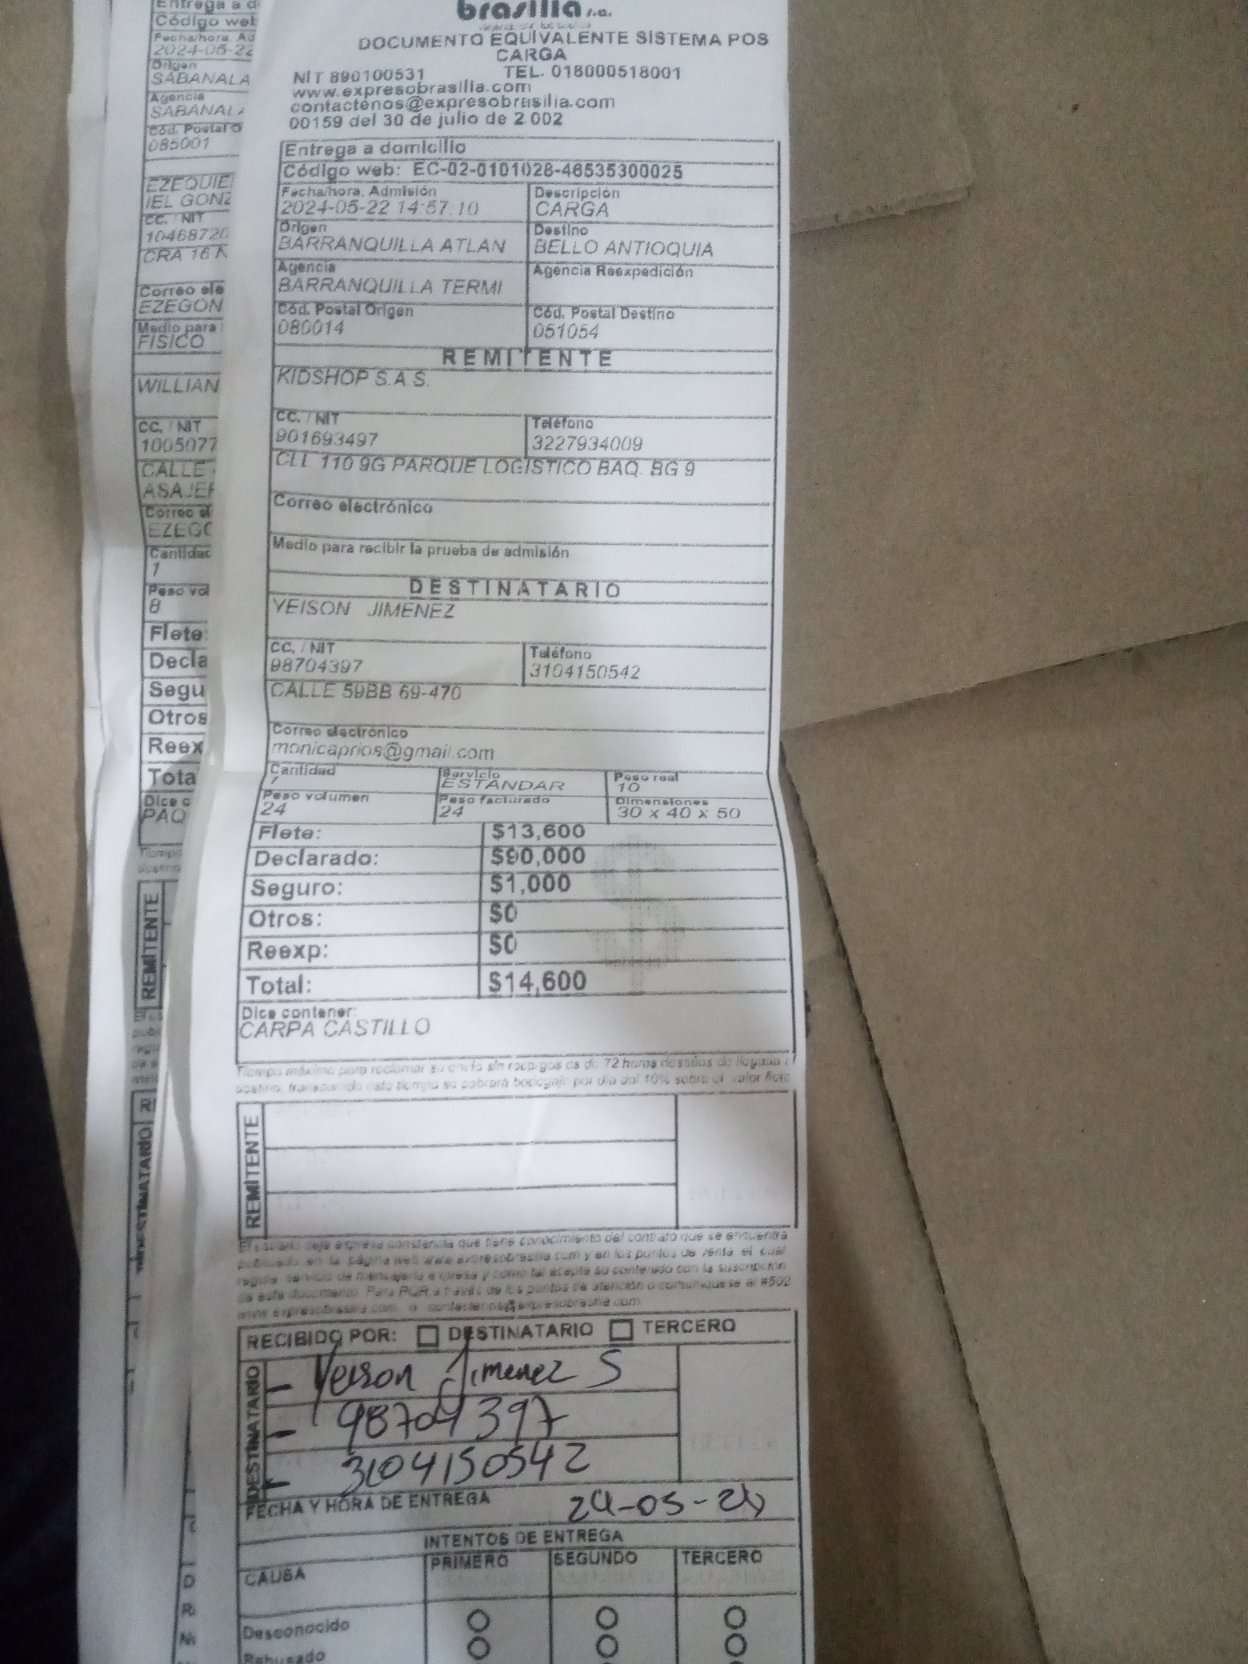 brasilia s.a.
DOCUMENTO EQUIVALENTE SISTEMA POS
CARGA
NIT 890100531 TEL. 018000518001
www.expresobrasilia.com
contactenos@expresobrasilia.com
00159 del 30 de julio de 2 002
Entrega a domicilio
Código web: EC-02-0101028-46535300025
Fecha/hora. Admisión Descripción
2024-05-22 14:57:10 CARGA
Origen Destino
BARRANQUILLA ATLAN BELLO ANTIOQUIA
Agencia Agencia Reexpedición
BARRANQUILLA TERMI
Cód. Postal Origen Cód. Postal Destino
080014 051054
REMITENTE
KIDSHOP S.A.S.
CC. / NIT Teléfono
901693497 3227934009
CLL 110 9G PARQUE LOGISTICO BAQ. BG 9
Correo electrónico
Medio para recibir la prueba de admisión
DESTINATARIO
YEISON JIMENEZ
CC. / NIT Teléfono
98704397 3104150542
CALLE 59BB 69-470
Correo electrónico
monicaprios@gmail.com
Cantidad Servicio Peso real
1 ESTANDAR 10
Peso volumen Peso facturado Dimensiones
24 24 30 x 40 x 50
Flete: $13,600
Declarado: $90,000
Seguro: $1,000
Otros: $0
Reexp: $0
Total: $14,600
Dice contener:
CARPA CASTILLO
Tiempo máximo para reclamar su envío sin recargos es de 72 horas después de llegada a
destino, transcurrido este tiempo se cobrará bodegaje por día del 10% sobre el valor flete
REMITENTE
El usuario deja expresa constancia que tiene conocimiento del contrato que se encuentra
publicado en la página web www.expresobrasilia.com y en los puntos de venta, el cual
regula servicio de mensajería expresa y como tal acepta su contenido con la suscripción
de este documento. Para PQR a través de los puntos de atención o comuníquese al #502
www.expresobrasilia.com o contactenos@expresobrasilia.com
RECIBIDO POR: DESTINATARIO TERCERO
DESTINATARIO
- Yeison Jimenez S
- 98704397
- 3104150542
FECHA Y HORA DE ENTREGA 24-05-24
INTENTOS DE ENTREGA
CAUSA PRIMERO SEGUNDO TERCERO
Desconocido
Rehusado
Entrega a d
Código wet
Fecha/hora. Ad
2024-05-22
Origen
SABANALA
Agencia
SABANALA
Cód. Postal O
085001
EZEQUIE
IEL GONZ
CC. / NIT
10468720
CRA 16 N
Correo ele
EZEGON
Medio para
FISICO
WILLIAN
CC. / NIT
1005077
CALLE
Correo el
EZEGO
Cantidad
1
Peso vol
8
Flete:
Decla
Segu
Otros
Reex
Tota
Dice c
PAQ
REMITENTE
DESTINATARIO